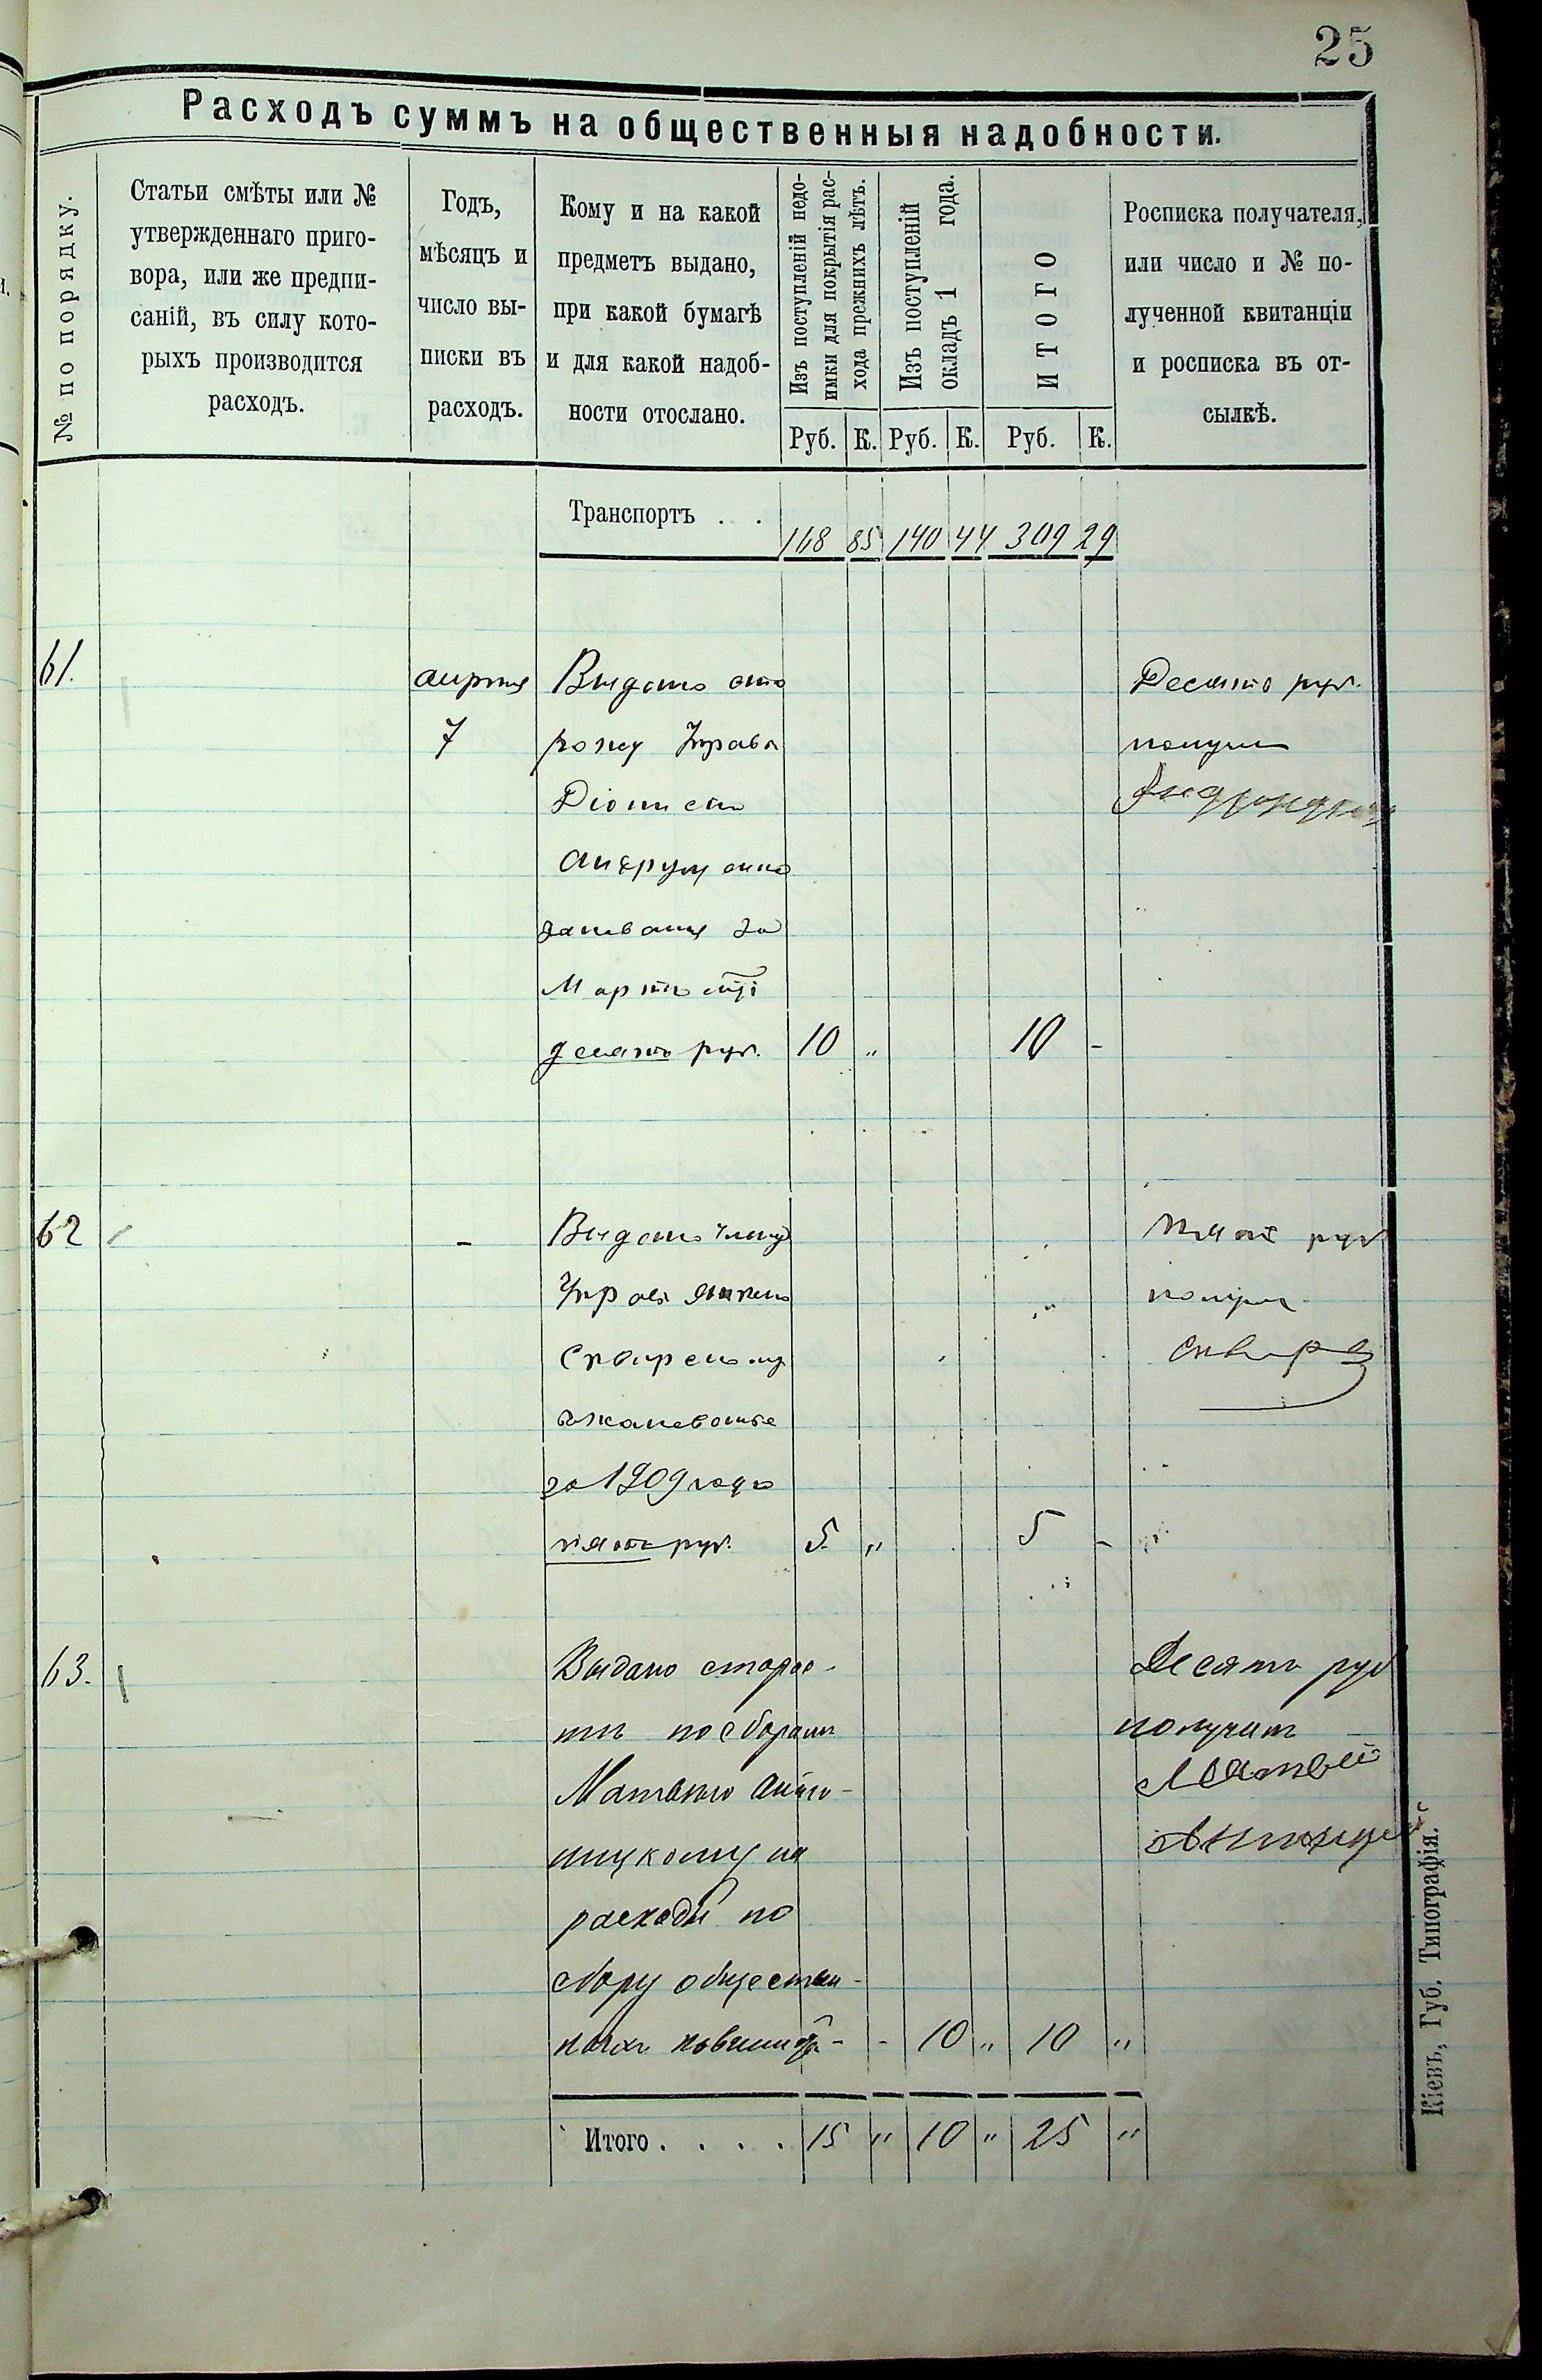 25
Расходъ суммъ на общественныя надобности.
№ по порядку.
Статьи смѣты или №
утвержденнаго приго-
вора, или же предпи-
саній, въ силу кото-
рыхъ производится
расходъ.
Годъ,
мѣсяцъ и
число вы-
писки въ
расходъ.
Кому и на какой
предметъ выдано,
при какой бумагѣ
и для какой надоб-
ности отослано.
Изъ поступленій недо-
имки для покрытія рас-
хода прежнихъ лѣтъ.
Изъ поступленій
окладъ 1 года.
ИТОГО
Росписка получателя,
или число и № по-
лученной квитанціи
и росписка въ от-
сылкѣ.
Руб. К. Руб. К. Руб. К.
Транспортъ . . 168 85 140 44 309 29
61. апрѣля Выдано сто Десять руб.
7 рожу Управы
за
Мартъ
десять руб. 10 „ 10 -
62 - Выдано члену Пять руб
Управы
жалованье
за 1909 годъ
пять руб. 5. „ 5 -
63. Выдано старос- Десять руб
тѣ по сборамъ получилъ
Матвѣю Анто- Матвей
ницкому на
расходы по
сбору обществен-
ныхъ - - 10 „ 10 „
Итого . . . . 15 „ 10 „ 25 „
Кіевъ, Губ. Типографія.